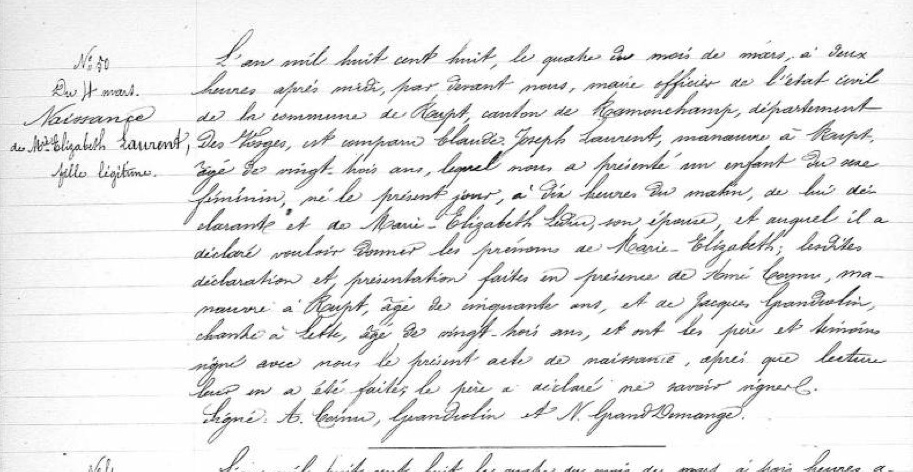 N° 50
Du 4 mars.
Naissance
de Mie Elizabeth Laurent,
fille légitime.
L'an mil huit cent huit, le quatre du mois de mars, à deux
heures après midi, par devant nous, maire officier de l'état civil
de la commune de Rupt, canton de Ramonchamp, département
Des Vosges, est comparu Claude Joseph Laurent, manœuvre à Rupt,
âgé de vingt-trois ans, lequel nous a présenté un enfant du sexe
féminin, né le présent jour, à dix heures du matin, de lui dé-
clarant et de Marie-Elizabeth Leduc, son épouse, et auquel il a
déclaré vouloir donner les prénoms de Marie-Elizabeth; lesdites
déclaration et présentation faites en présence de Amé Cornu, ma-
nœuvre à Rupt, âgé de cinquante ans, et de Jacques Grandvolin,
chantre à Lette, âgé de vingt-trois ans, et ont les père et témoins
signé avec nous le présent acte de naissance, après que lecture
leur en a été faite, le père a déclaré ne savoir signer.
Signé: A. Cornu, Grandvolin et N. GrandDemange.
L'an mil huit cent huit, le quatre du mois de mars, à trois heures a-